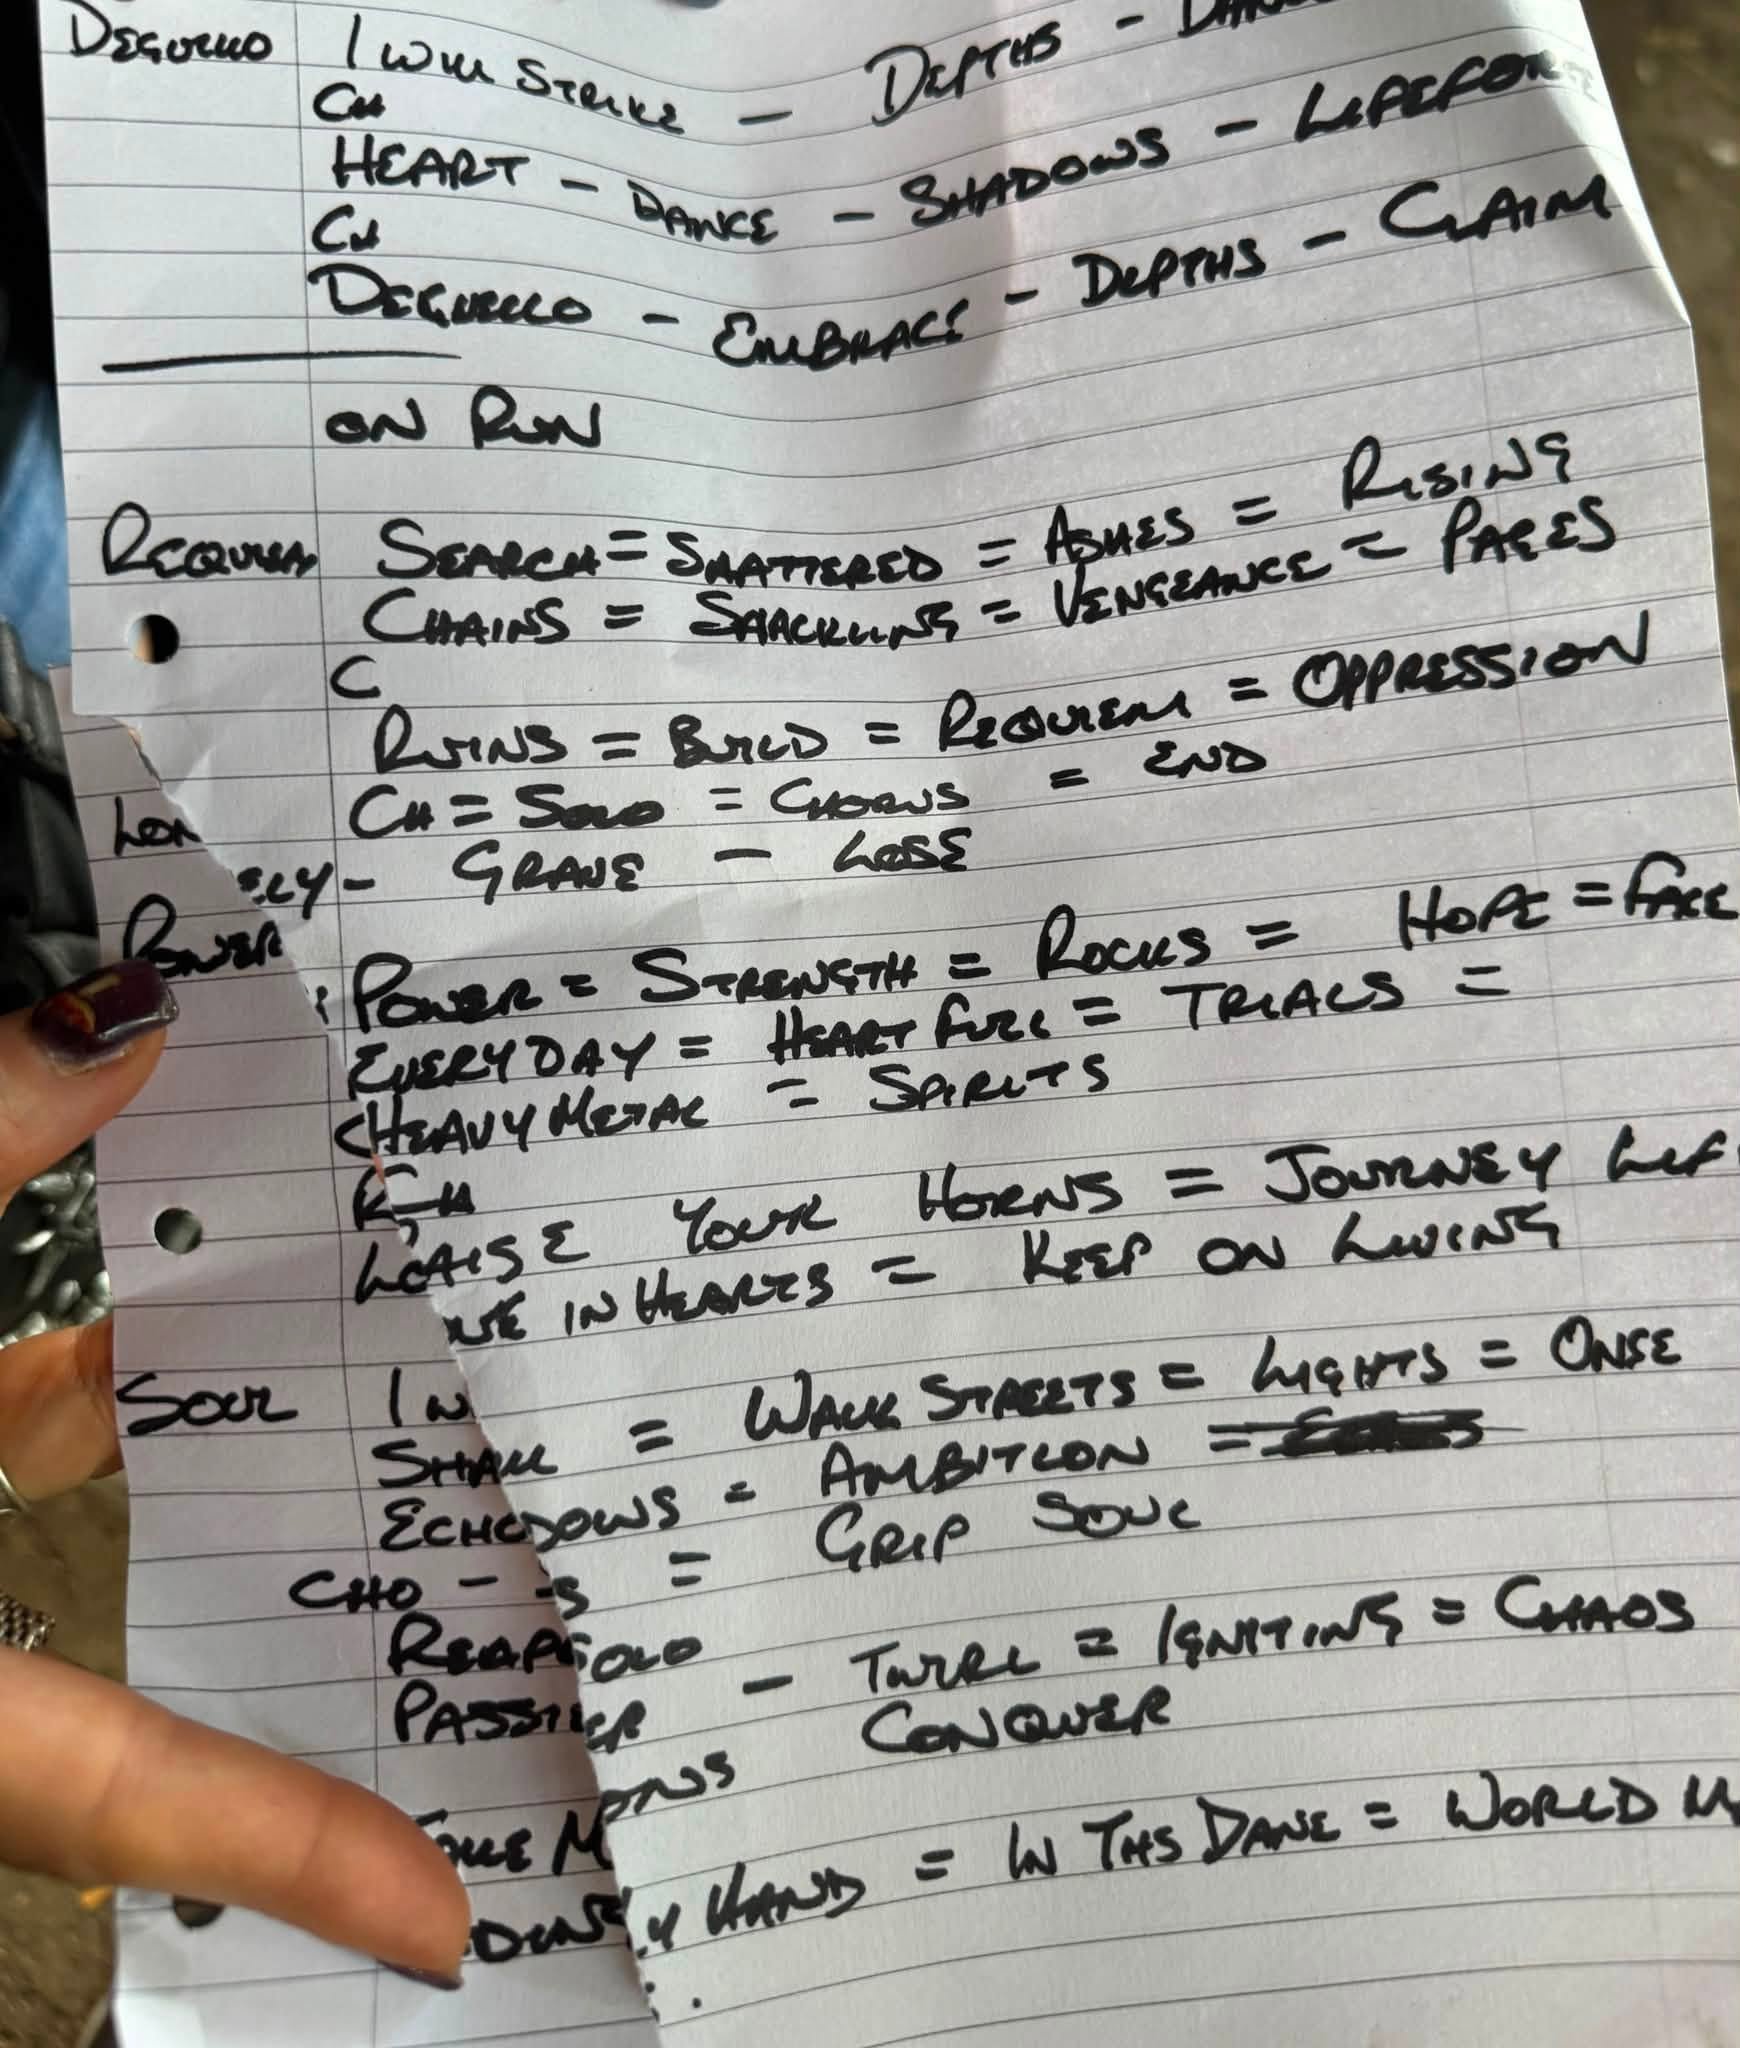 DEGUELLO I WILL STRIKE - DEPTHS -
CH
HEART - DANCE - SHADOWS -
CH
DEGUELLO - EMBRACE - DEPTHS - CLAIM
ON RUN
REQUIEM SEARCH = SHATTERED = ASHES = RISING
CHAINS = SHACKLING = VENGEANCE = PAGES
C
RUINS = BUILD = REQUIEM = OPPRESSION
CH = SOLO = CHORUS = END
LON ELY - GRAVE - LOSE
POWER POWER = STRENGTH = ROCKS = HOPE = FACE
EVERYDAY = HEART FULL = TRIALS =
HEAVY METAL = SPIRITS
RAISE YOUR HORNS = JOURNEY
IN HEARTS = KEEP ON LIVING
SOUL I W
= WALK STREETS = LIGHTS = ONSE
SHA
DOWS = AMBITION =
ECHO
S = GRIP SOUL
CHO - SOLO
REAP
- TWIRL = IGNITING = CHAOS
PASSI
CONQUER
HAND = IN THS DANE = WORLD